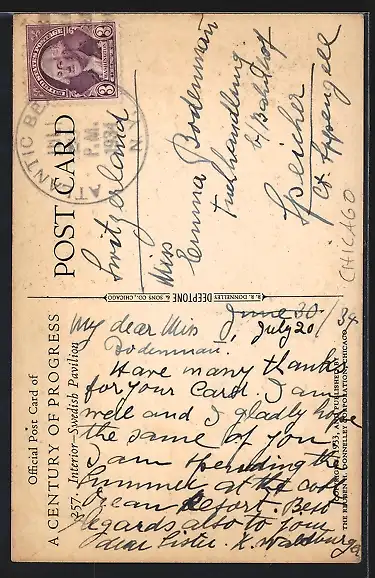 Official Post Card of
A CENTURY OF PROGRESS
257. Interior—Swedish Pavilion
POST CARD
R.R. DONNELLEY & SONS CO., CHICAGO
DEEPTONE
THE REUBEN H. DONNELLEY CORPORATION, CHICAGO
ATLANTIC
P.M.
1934
N.Y.
3
3
CHICAGO
Switzerland
Miss
Emma Bodenmann
Tuchhandlung
b/ Bahnhof
Speicher
Ct. Appenzell
June 30/34
My dear Miss July 20
Bodenman.
Have many thanks
for your Card. I am
well and I gladly hope
the same of you
I am spending the
Summer at the cool
Ocean Resort. Best
Regards also to your
dear Sister. K. Waldburga